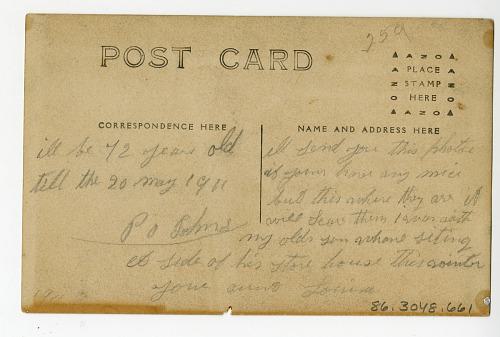 259
POST CARD
AZO
PLACE
STAMP
HERE
AZO
CORRESPONDENCE HERE
ill be 72 years old
till the 20 may 1911
P O
NAME AND ADDRESS HERE
ill send you this photos
if your have any mice
but this where they are it
will scare them
my olds son whane siting
et side of his store house this winter
your aunt Louisa
86.3048.661